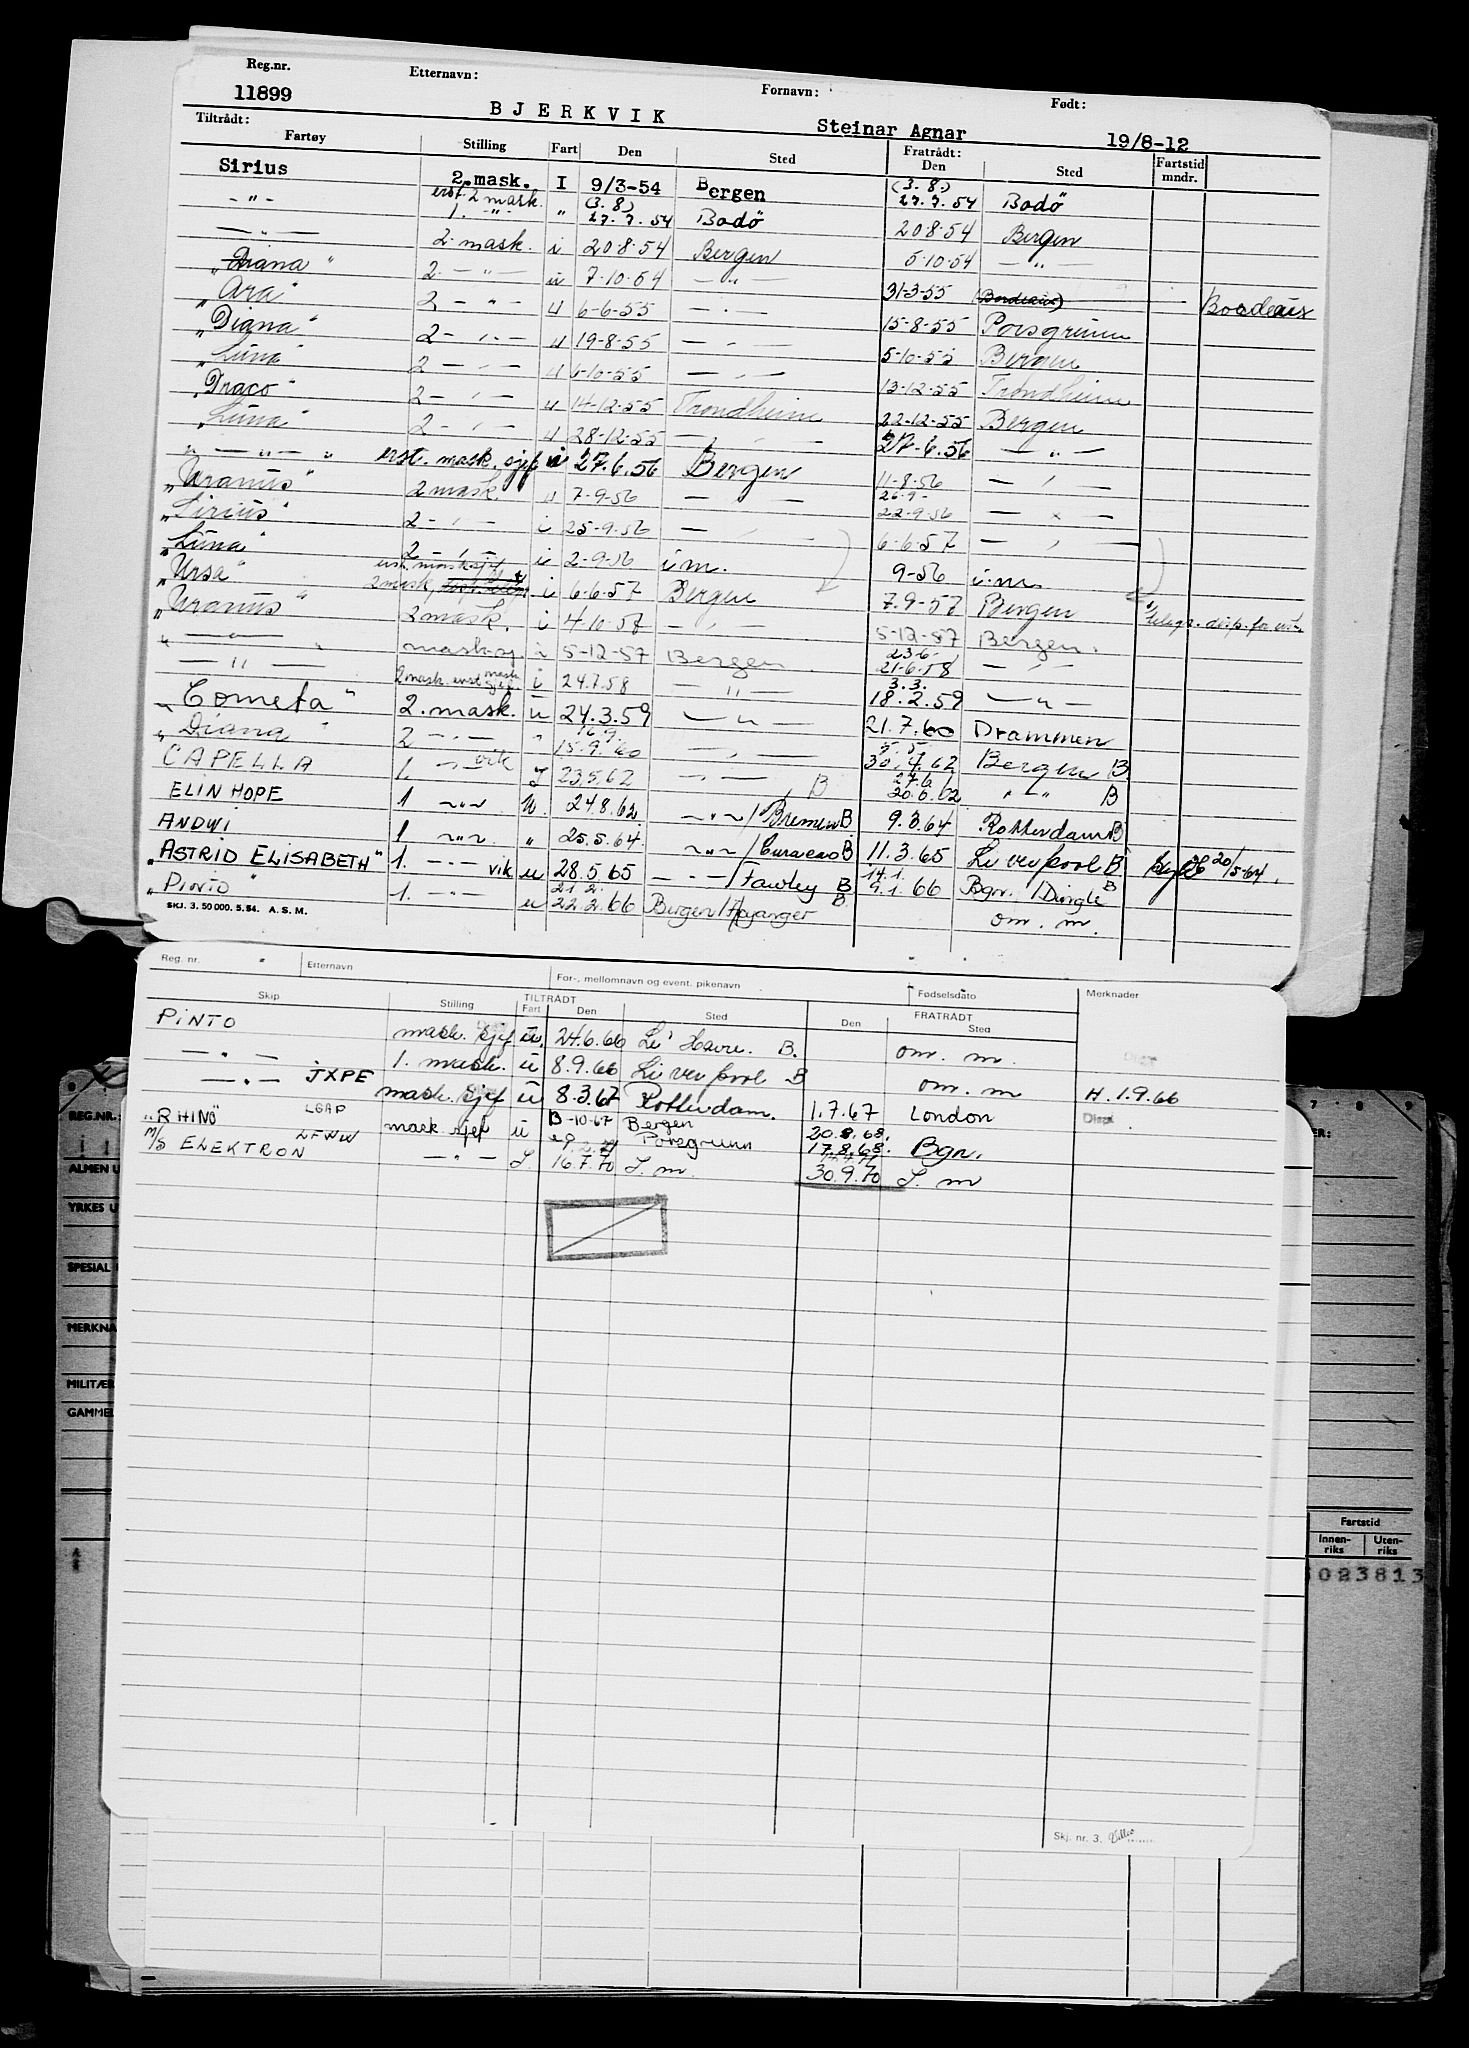 Reg.nr. Etternavn: Fornavn: Født:
11899 BJERKVIK Steinar Agnar 19/8-12
Tiltrådt: Fratrådt:
Fartøy Stilling Fart Den Sted Den Sted Fartstid mndr.
Sirius 2.mask. I 9/3-54 Bergen (3.8.) 27.7.54 Bodö
-"- erst. 2 mask. 1. -"- " (3.8) 27.7.54 Bodö 20.8.54 Bergen
—"— 2. mask. i 20.8.54 Bergen 5.10.54 —"—
"Diana" 2. —"— u 7.10.54 —"— 31-3-55 (Bordeaux) Bordeaux
"Ara" 2 —"— u 6-6-55 —"— 15-8-55 Porsgrunn
"Diana" 2 —"— u 19-8-55 —"— 5-10-55 Bergen
"Luna" 2 —"— u 6-10-55 —"— 13-12-55 Trondheim
"Draco" 2 —"— u 14-12-55 Trondheim 22-12-55 Bergen
"Luna" 2 —"— u 28-12-55 —"— 27-6.56 —"—
"—"—" erst. mask. sjef u 27.6.56 Bergen 11-8-56 —"—
"Uranus" 2 mask u 7-9-56 —"— 26.9- 22-9-56 —"—
"Sirius" 2 —"— i 25-9-56 —"— 6-6-57 —"—
"Luna" 2 —"— i 2-9-56 i.m. 9-56 i.m.
"Ursa" erst. mask.sjef 2 mask, i 6-6-57 Bergen 7.9-57 Bergen
"Uranus" 2 mask. i 4-10-57 —"— 5-12-57 Bergen. telegr. disp. for
"—"—" mask.sj. i 5-12-57 Bergen 23-6- 21-6-58 —"—
—"— 2 mask. erst. mask. sjef. i 24.7.58 —"— 3.3. 18.2.59 —"—
"Cometa" 2. mask. u 24.3.59 —"— 21.7.60 Drammen
"Diana" 2 —"— " 16.9. 15.9.60 —"— 5.5. 30.4.62 Bergen B
CAPELLA 1. —"— vik I 23.5.62 —"— B 27.6. 20.6.62 "—" B
ELIN HOPE 1 ~"~ U. 24.8.62 —"—/Bremen B 9.3.64 Rotterdam B
ANDWI 1 ~"~ " 25.5.64. ~"~/Curacao B 11.3.65 Liverpool B 20/5-64.
"ASTRID ELISABETH" 1. —"— vik u 28.5.65 —"—/Fawley B 14.1. 9.1.66 Bgn./Dingle B
"Pinto" 1. —"— u 21.2. 22.2.66 Bergen/Høyanger B. om. m.
SKJ. 3. 50 000. 5. 54. A. S. M.
Reg. nr. Etternavn For-, mellomnavn og event. pikenavn Fødselsdato Merknader
TILTRÅDT FRATRÅDT
Skip Stilling Fart Den Sted Den Sted
PINTO mask. sjef u. 24.6.66 Le Havre. B. om. m.
—"— 1. mask. u 8.9.66 Liverpool B om. m H. 1.9.66
—"— JXPE mask. sjef u 8.3.67 Rotterdam. 1.7.67 London
"RHINO" mask. sjef u -10-67 Bergen 20.8.68. 17.8.68. Bgn.
M/S ELEKTRON LFWW —"— I. Porsgrunn 16.7.70 I. m. 30.9.70 I. m
Skj. nr. 3.
REG.NR.:
ALMEN U
YRKES U
SPESIAL
MERKNA
MILITÆR
GAMMEL
7 · 8 · 9
ER:
Fartstid
Innenriks Utenriks
023813